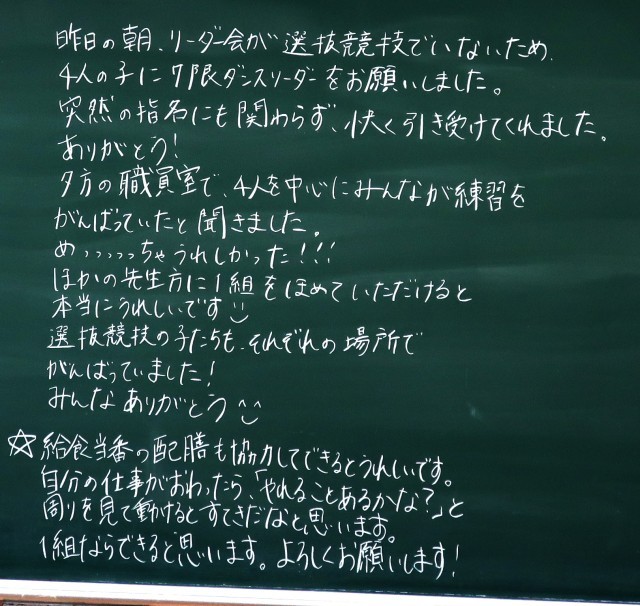 昨日の朝、リーダー会が選抜競技でいないため、
4人の子に7限ダンスリーダーをお願いしました。
突然の指名にも関わらず、快く引き受けてくれました。
ありがとう!
夕方の職員室で、4人を中心にみんなが練習を
がんばっていたと聞きました。
めっっっっっちゃうれしかった!!!
ほかの先生方に1組をほめていただけると
本当にうれしいです
選抜競技の子たちも、それぞれの場所で
がんばっていました!
みんなありがとう
☆給食当番の配膳も協力してできるとうれしいです。
自分の仕事がおわったら、「やれることあるかな?」と
周りを見て動けるとすてきだなと思います。
1組ならできると思います。よろしくお願いします!